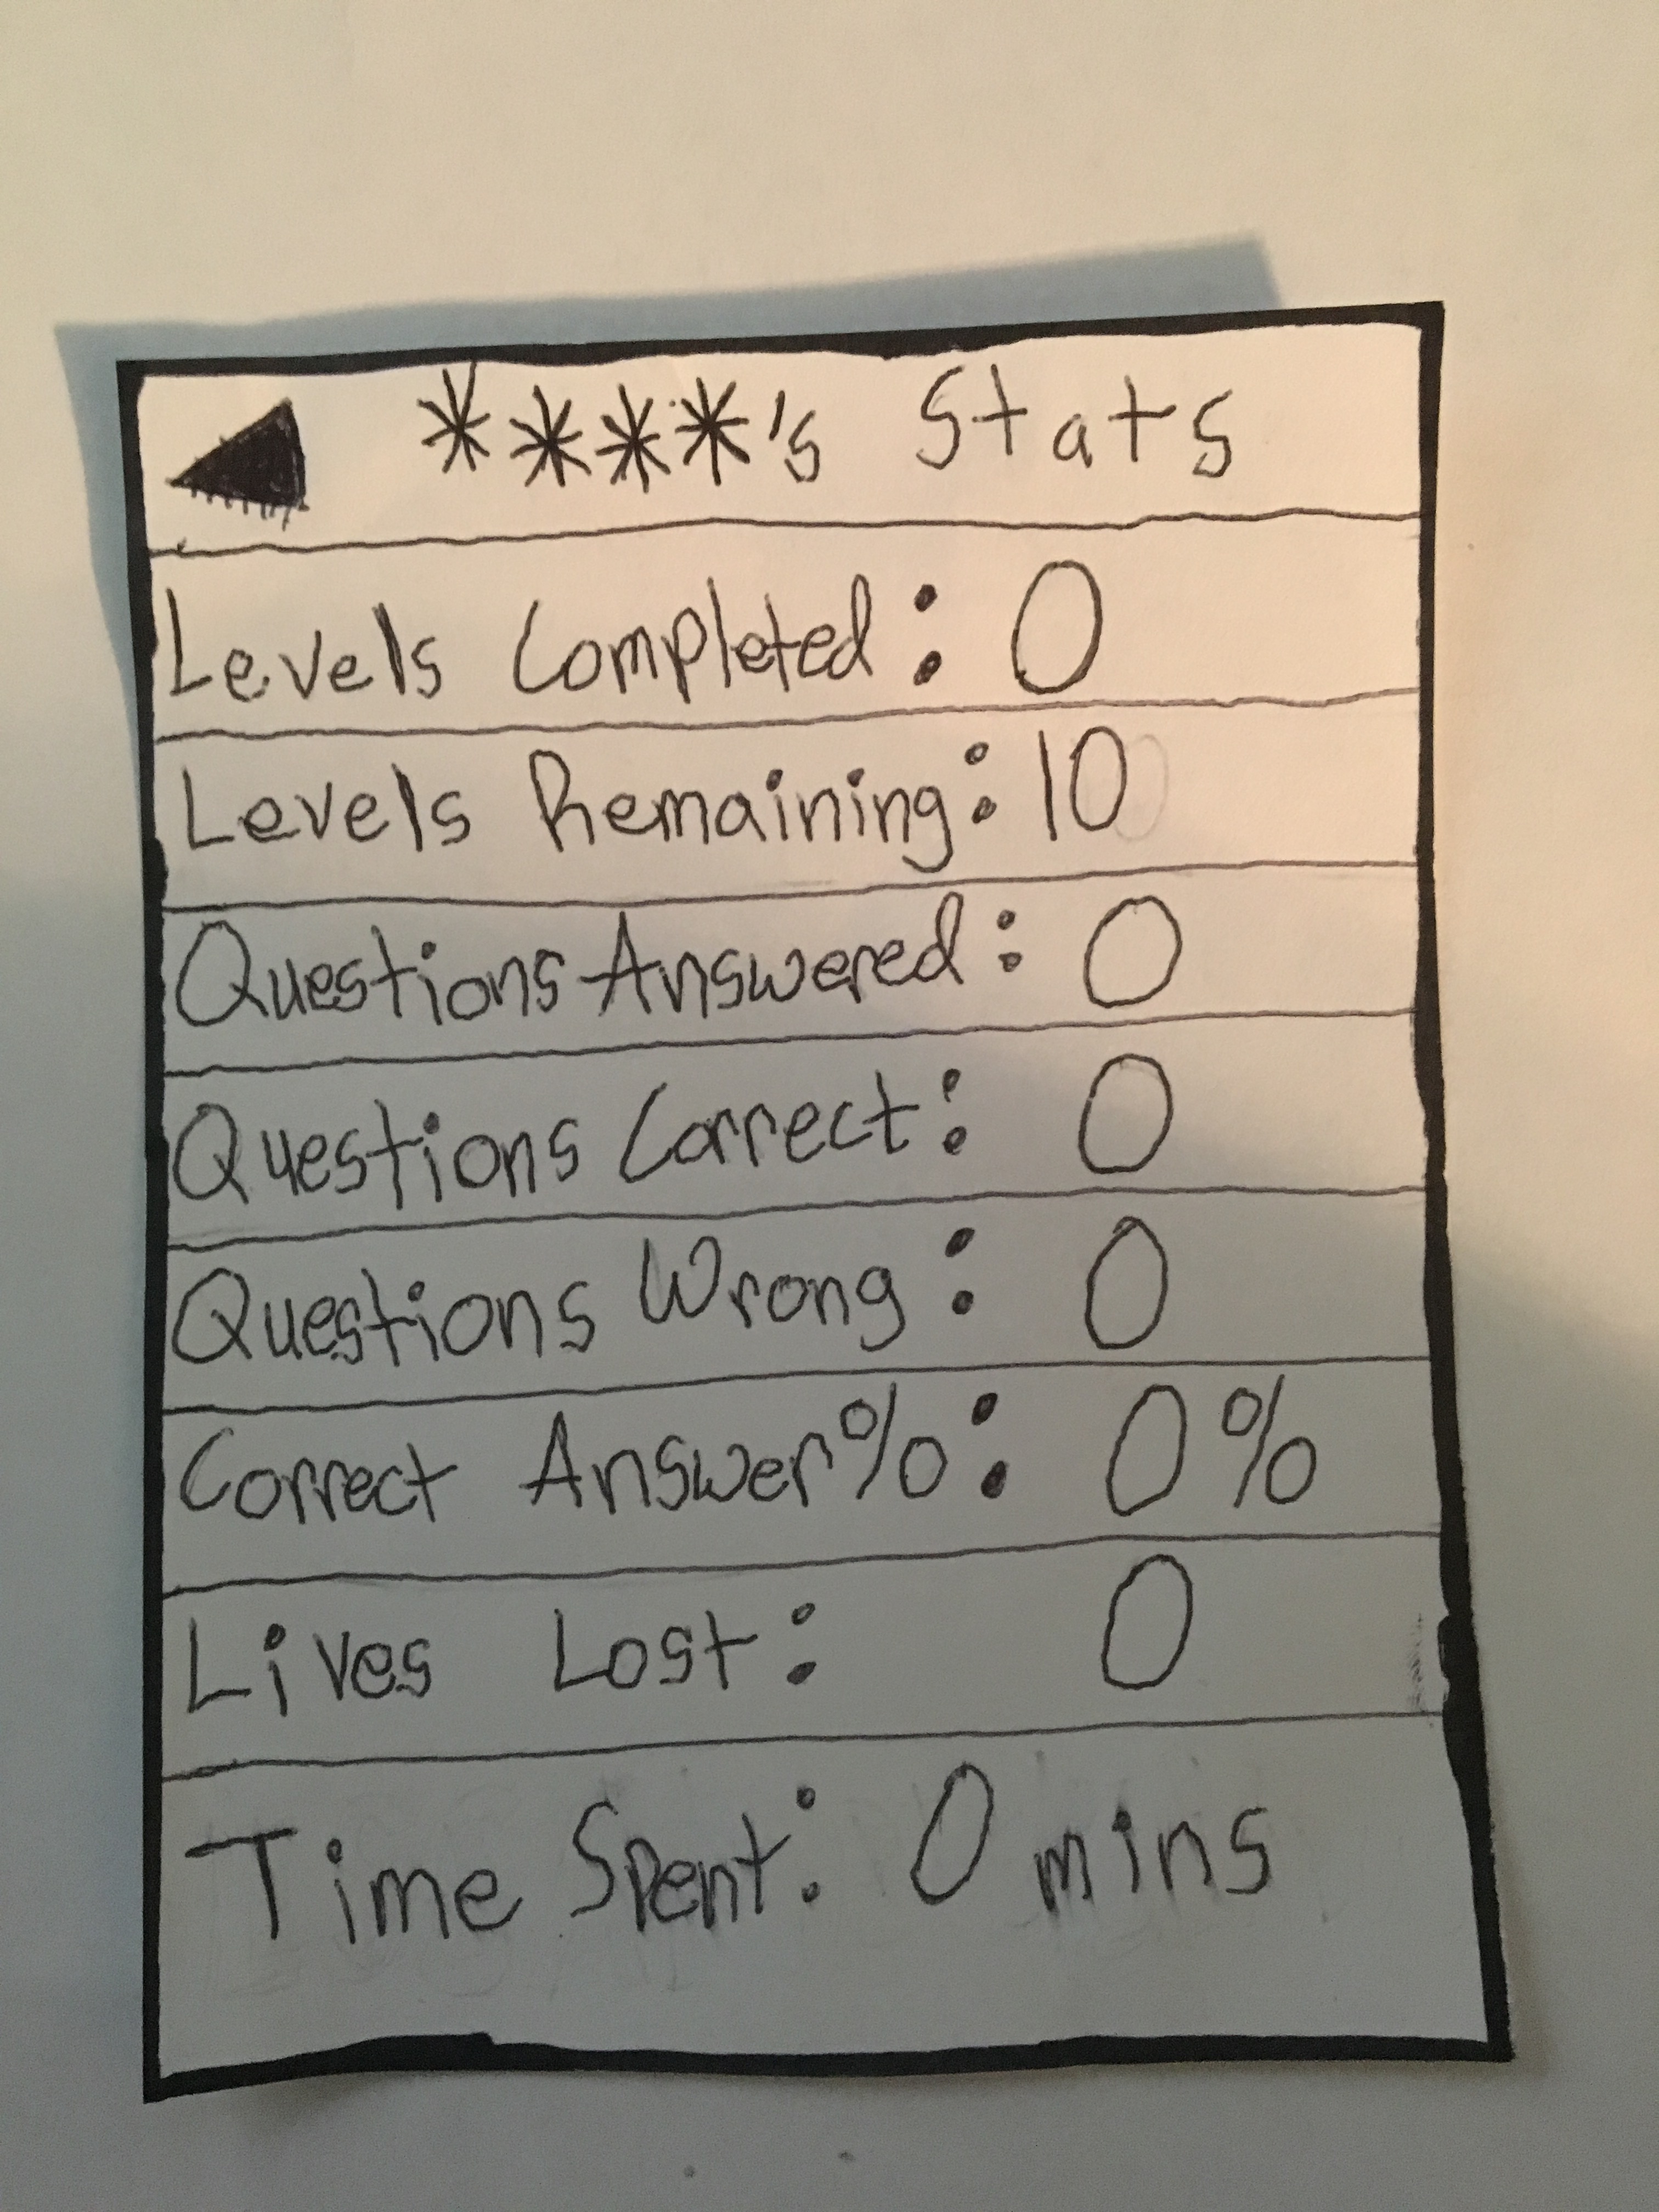 ****'s Stats
Levels Completed: 0
Levels Remaining: 10
Questions Answered: 0
Questions Correct: 0
Questions Wrong: 0
Correct Answer%: 0%
Lives Lost: 0
Time Spent: 0 mins